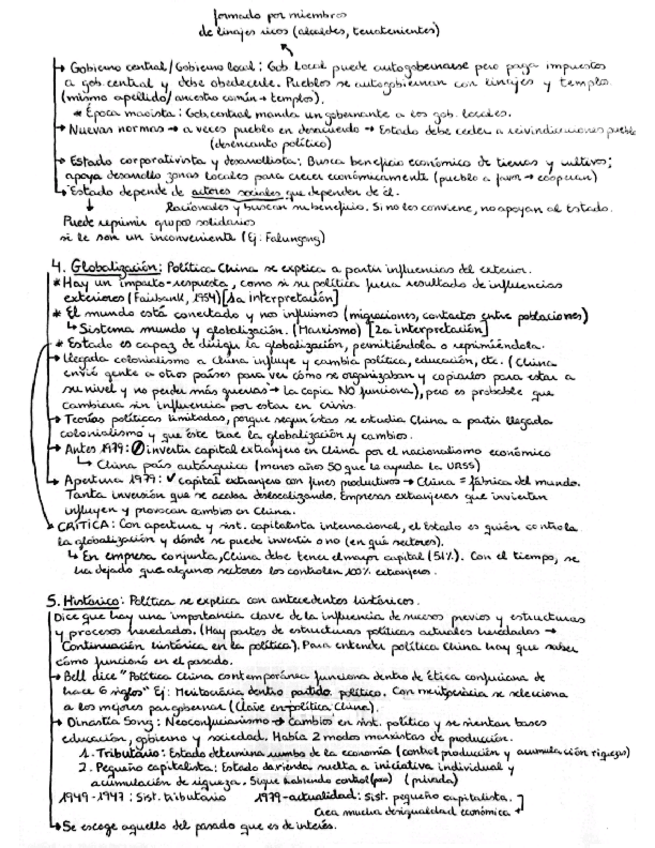 formado por miembros
de linajes ricos (alcaldes, terratenientes)
↳ Gobierno central/Gobierno local: Gob. local puede autogobernarse pero paga impuestos
a gob. central y debe obedecerle. Pueblos se autogobiernan con linajes y templos.
(mismo apellido/ancestro común → templos).
* Época maoísta: Gob. central manda un gobernante a los gob. locales.
→ Nuevas normas → a veces pueblo en desacuerdo → Estado debe ceder a reivindicaciones pueblo
(desencanto político)
→ Estado corporativista y desarrollista: Busca beneficio económico de tierras y cultivos;
apoya desarrollo zonas locales para crecer económicamente (pueblo a favor → cooperan)
↳ Estado depende de actores sociales que dependen de él.
Racionales y buscan su beneficio. Si no les conviene, no apoyan al Estado.
Puede reprimir grupos solidarios
si le son un inconveniente (Ej: Falungong)
4. Globalización: Política China se explica a partir influencias del exterior.
* Hay un impacto-respuesta, como si su política fuera resultado de influencias
exteriores (Fairbank, 1954) [1a interpretación]
* El mundo está conectado y nos influimos (migraciones, contactos entre poblaciones)
↳ Sistema mundo y globalización. (Marxismo) [2a interpretación]
* Estado es capaz de dirigir la globalización, permitiéndola o reprimiéndola.
→ Llegada colonialismo a China influye y cambia política, educación, etc. (China
envió gente a otros países para ver cómo se organizaban y copiarlos para estar a
su nivel y no perder más guerras → la copia NO funciona), pero es probable que
cambiara sin influencia por estar en crisis.
→ Teorías políticas limitadas, porque según éstas se estudia China a partir llegada
colonialismo y que éste trae la globalización y cambios.
→ Antes 1979: Ø invertir capital extranjero en China por el nacionalismo económico
↳ China país autárquico (menos años 50 que le ayuda la URSS)
→ Apertura 1979: ✓ capital extranjero con fines productivos → China = fábrica del mundo.
Tanta inversión que se acaba deslocalizando. Empresas extranjeras que invierten
influyen y provocan cambios en China.
→ CRÍTICA: Con apertura y sist. capitalista internacional, el Estado es quién controla
la globalización y dónde se puede invertir o no (en qué sectores).
↳ En empresa conjunta, China debe tener el mayor capital (51%). Con el tiempo, se
ha dejado que algunos sectores los controlen 100% extranjeros.
5. Histórico: Política se explica con antecedentes históricos.
Dice que hay una importancia clave de la influencia de sucesos previos y estructuras
y procesos heredados. (Hay partes de estructuras políticas actuales heredadas →
Continuación histórica en la política). Para entender política China hay que saber
cómo funcionó en el pasado.
→ Bell dice "Política China contemporánea funciona dentro de ética confuciana de
hace 6 siglos" Ej: Meritocracia dentro partido político. Con meritocracia se selecciona
a los mejores para gobernar (clave en política China).
→ Dinastía Song: Neoconfucianismo → Cambios en sist. político y se sientan bases
educación, gobierno y sociedad. Había 2 modos marxistas de producción.
1. Tributario: Estado determina rumbo de la economía (control producción y acumulación riquezas)
2. Pequeño capitalista: Estado da rienda suelta a iniciativa individual y
acumulación de riqueza. Sigue habiendo control (privada)
1949-1947: Sist. tributario 1979-actualidad: Sist. pequeño capitalista.
Crea mucha desigualdad económica
↳ Se escoge aquello del pasado que es de interés.